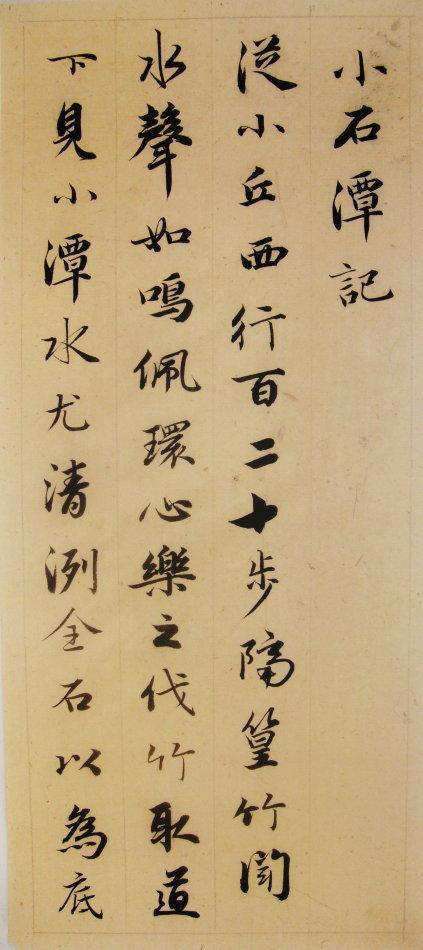 小石潭記
從小丘西行百二十步隔篁竹聞
水聲如鳴佩環心樂之伐竹取道
下見小潭水尤清洌全石以為底